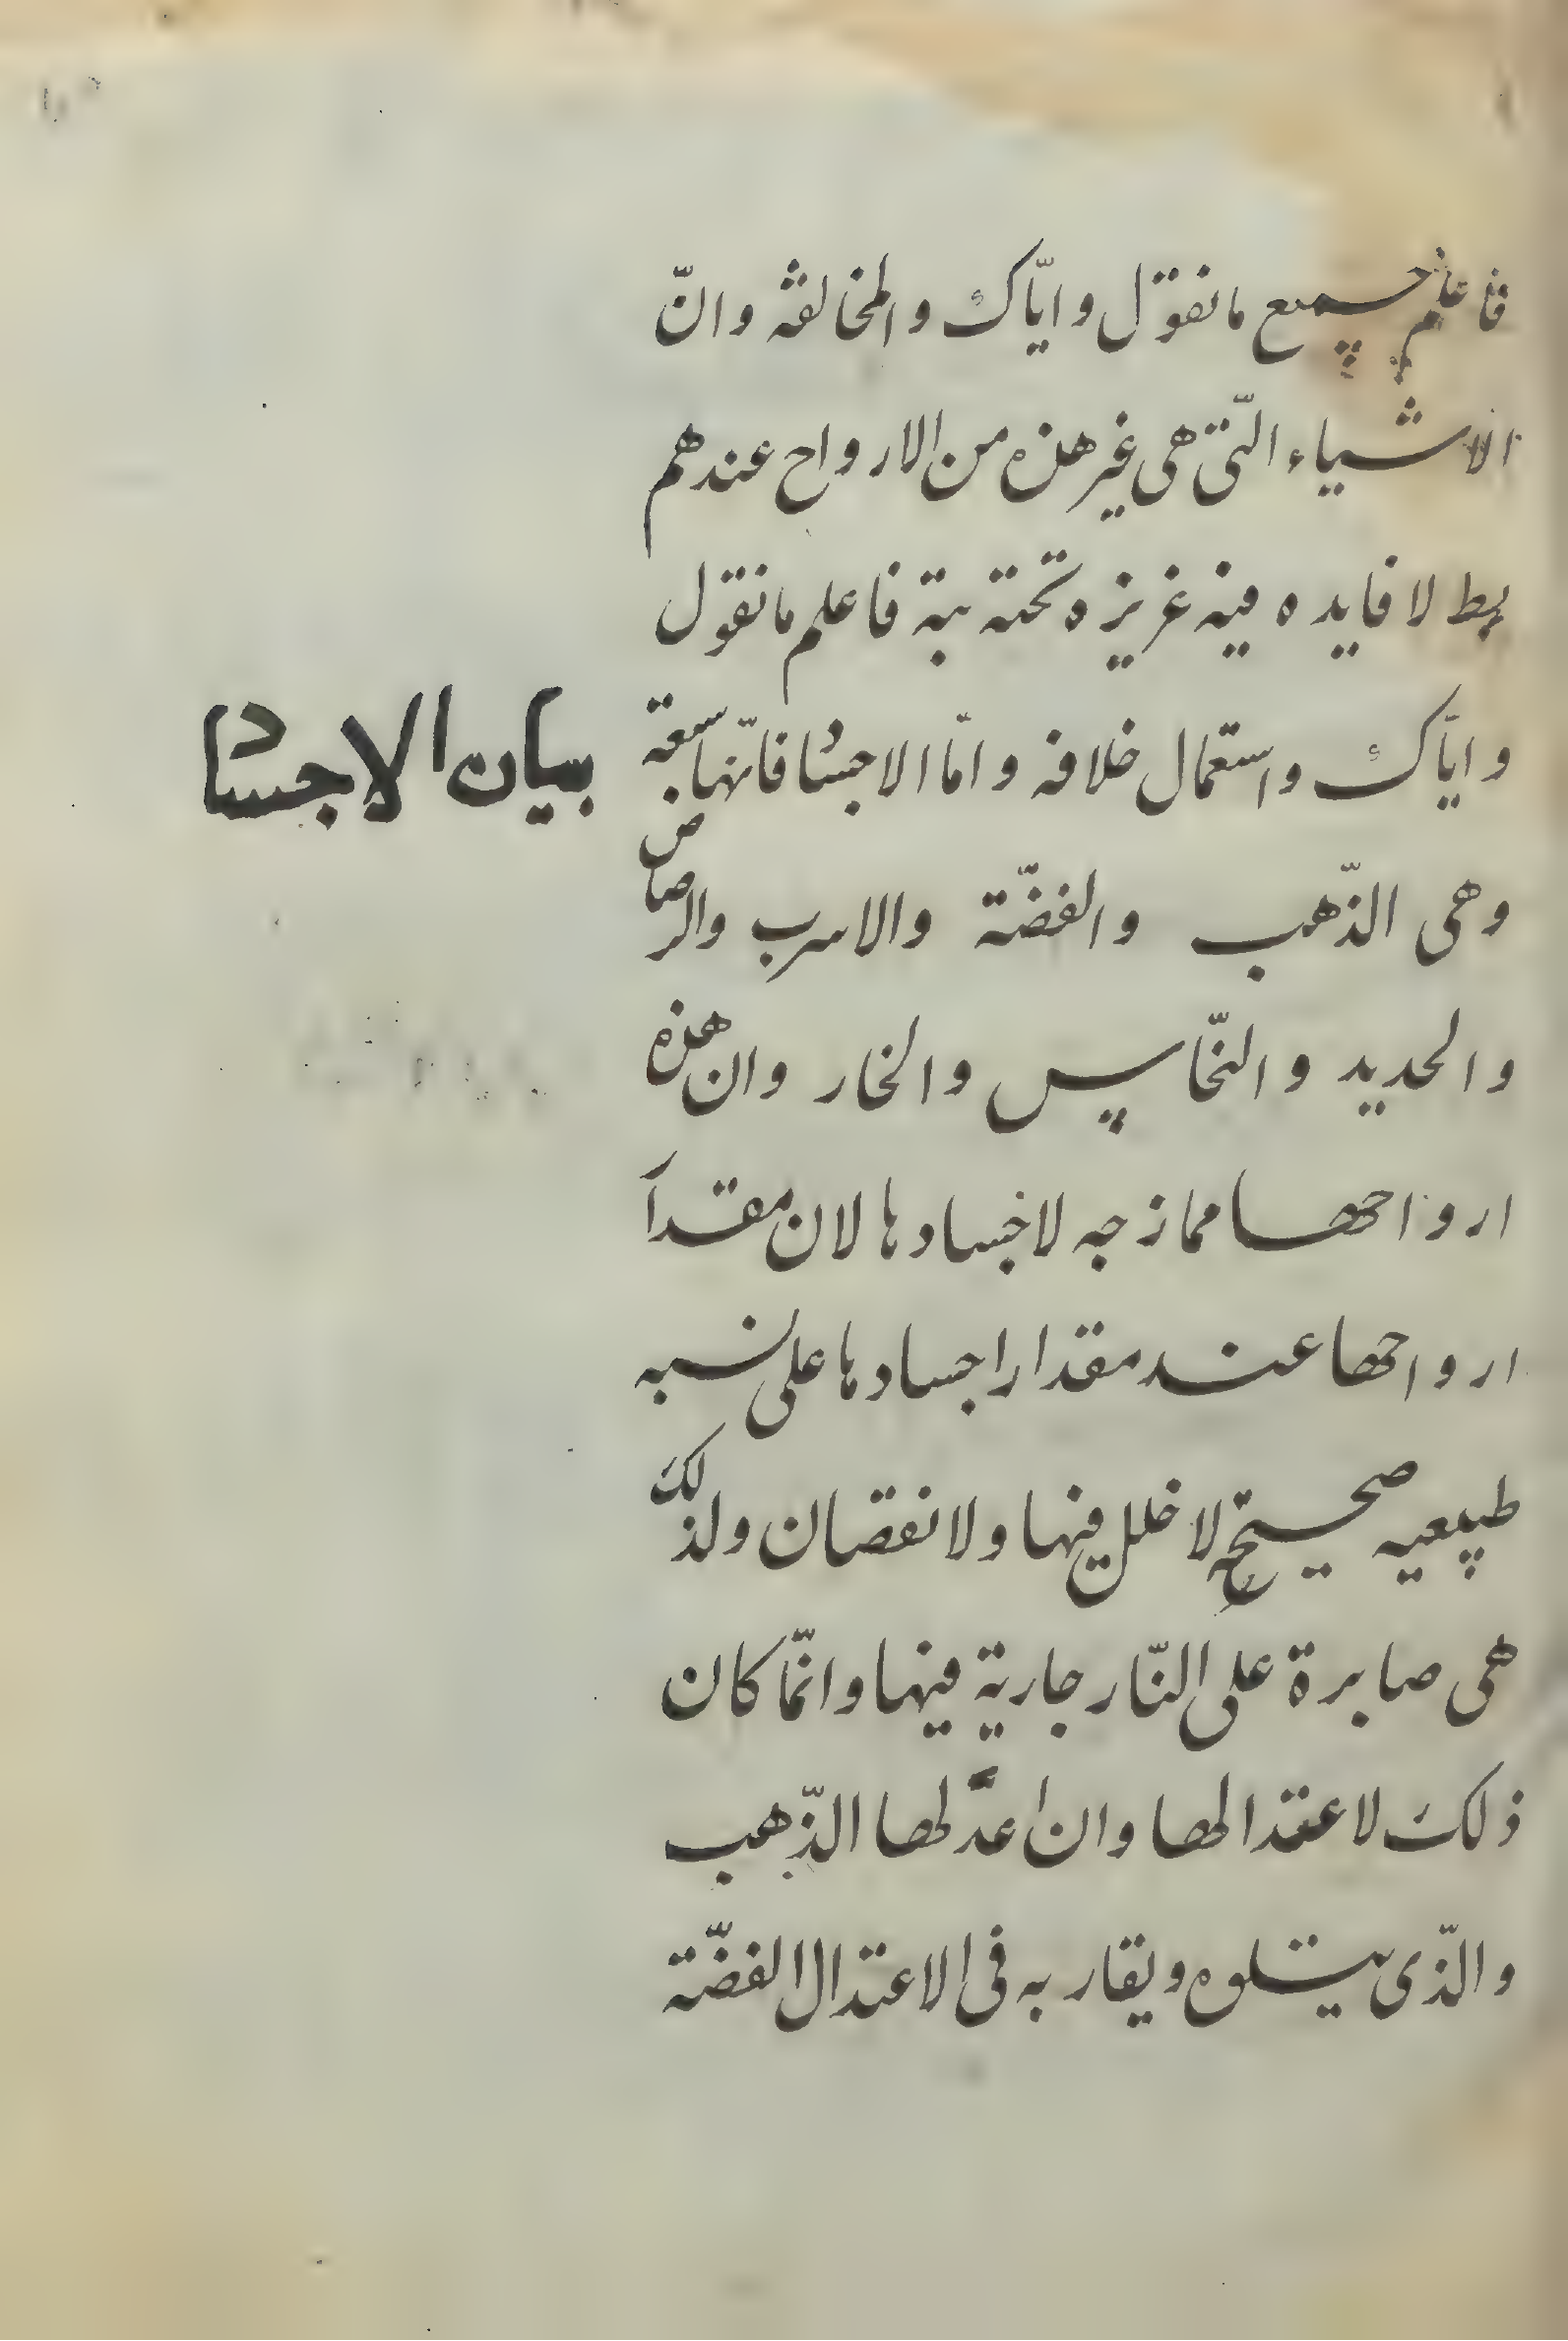 فاعلم جميع ما نقول وايّاك والمخالفة وانّ
الاشياء الّتي هي غير هذه من الارواح عندهم
لا فايده فيه غريزه تحته بتة فاعلم ما نقول
وايّاك واستعمال خلافه وامّا الاجساد فانّها سبعة
بيان الاجساد
وهي الذّهب والفضّة والاسرب والرصاص
والحديد والنّحاس والخار وان هذه
ارواحها ممازجه لاجسادها لان مقدآ
ارواحها عند مقدار اجسادها على نسبه
طبيعيه صحيحة لا خلل فيها ولا نقصان ولذلك
هي صابرة على النّار جارية فيها وانّما كان
ذلك لاعتدالها وان اعدّلها الذّهب
والّذي يتلوه ويقاربه في الاعتدال الفضّة